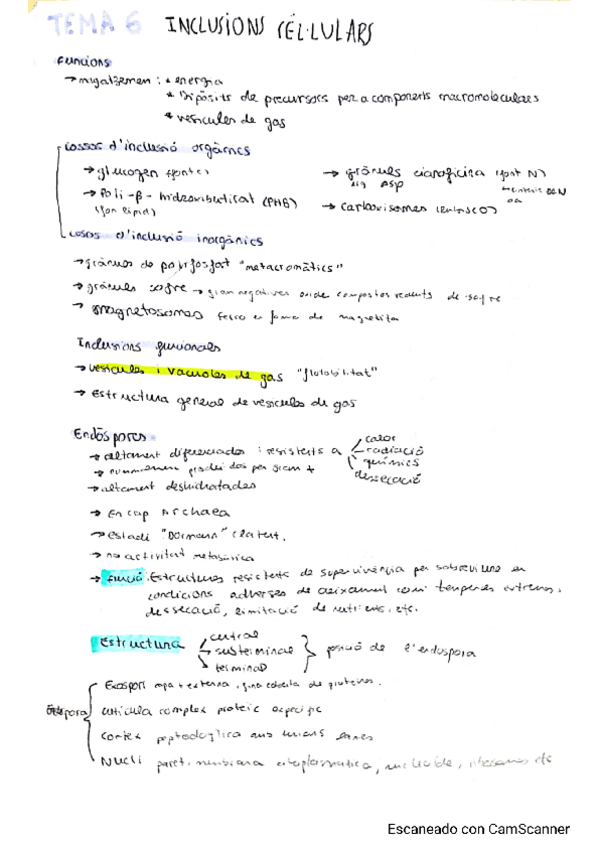 TEMA 6 INCLUSIONS CÉL·LULARS
Funcions
→ magatzemen : * energia
* Dipòsits de precursors per a components macromoleculars
* vesícules de gas
cossos d'inclusió orgànics
→ glucogen (font C)
→ Poli-β-hidroxibutirat (PHB)
(font lípid)
→ grànuls cianoficina (font N)
arg asp
→ carboxisomes
cosos d'inclusió inorgànics
→ grànuls de polifosfat "metacromàtics"
→ grànuls sofre → gram negatives compostos reduits de sofre
→ magnetosomes ferro en forma de magnetita
Inclusions funcionals
→ vesícules i vacuoles de gas "flotabilitat"
→ Estructura general de vesícules de gas
Endòspores
→ altament diferenciades i resistents a
calor
radiació
químics
dessecació
→ produides per gram +
→ altament deshidratades
→ En cap Archaea
→ estadi "Dormant" latent.
→ no activitat metabòlica
→ funció: Estructures resistents de supervivència per sobreviure en
condicions adverses de creixement com temperes extremes,
dessecació, limitació de nutrients, etc.
Estructura
central
subterminal
terminal
posició de l'endospora
Exospori capa + externa, fina coberta de proteines.
cutícula complex proteic específic
cortex peptidoglicà amb unions
Nucli paret, membrana citoplasmàtica, nucleoide, ribosomes etc
Escaneado con CamScanner